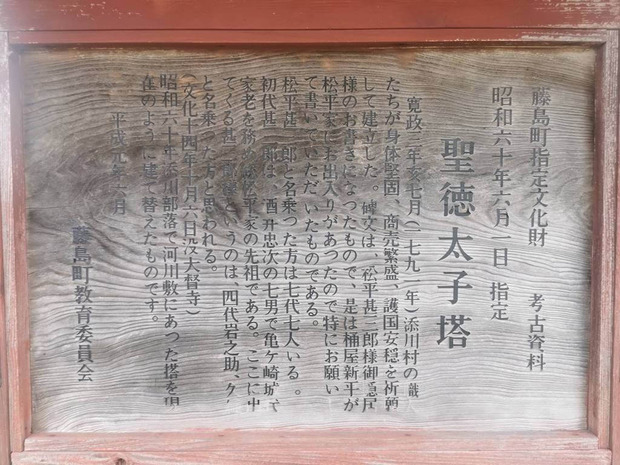 藤島町指定文化財　考古資料
昭和六十年六月一日　指定
聖徳太子塔
寛政三年亥七月（一七九一年）添川村の
たちが身体堅固、商売繁盛、護国安穏を祈願
して建立した。碑文は、松平甚三郎様御隠居
様のお書きになったもので、是は桶屋新平が
松平家にお出入りがあったので特にお願い
て書いていただいたものである。
松平甚三郎と名乗った方は七代七人いる。
初代甚三郎は、酒井忠次の七男で亀ヶ崎城
家老を務め松平家の先祖である。ここに出
てくる甚三郎様というのは、四代岩之助、
と名乗った方と思われる。
（文化十四年十月六日没大督寺）
昭和六十年添川部落で河川敷にあった塔を現
在のように建て替えたものです。
平成元年 月
藤島町教育委員会